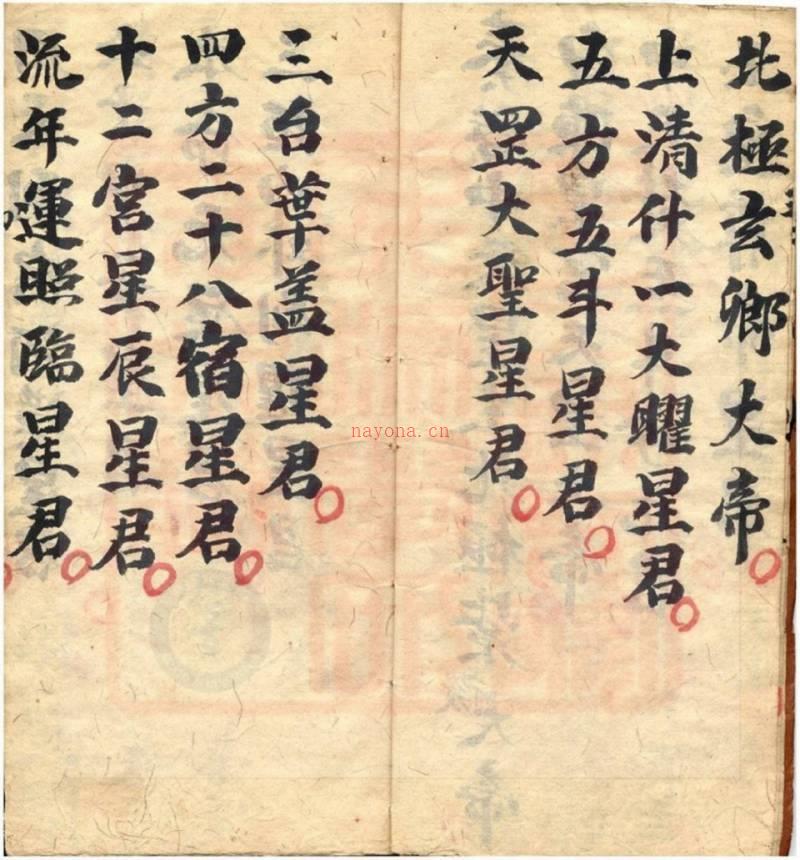 北極玄卿大帝
上清什一大曜星君
五方五斗星君
天罡大聖星君
三台華盖星君
四方二十八宿星君
十二宮星辰星君
流年運照臨星君
nayona.cn